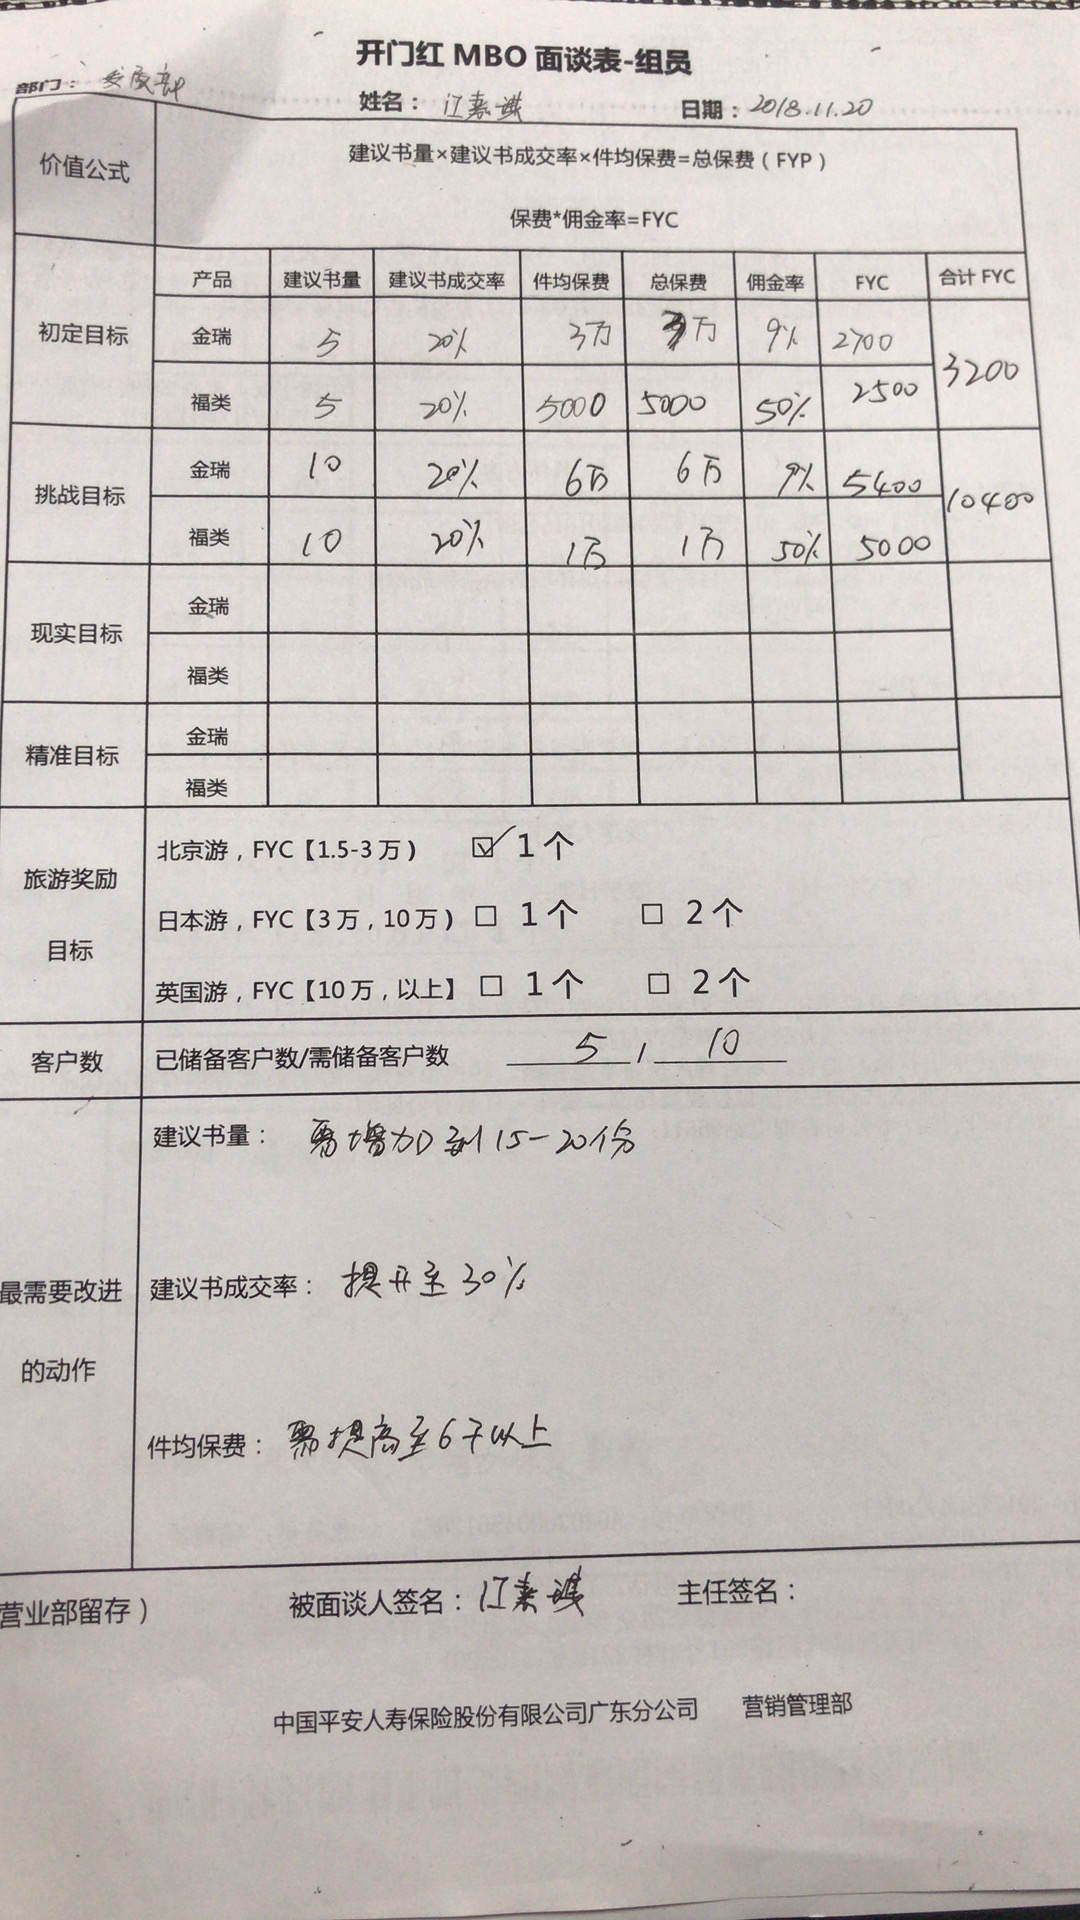 开门红 MBO 面谈表-组员
部门： 发展部 姓名： 江嘉淇 日期：2018.11.20
价值公式
建议书量×建议书成交率×件均保费=总保费（FYP）
保费*佣金率=FYC
产品 建议书量 建议书成交率 件均保费 总保费 佣金率 FYC 合计 FYC
初定目标
金瑞 5 20% 3万 3万 9% 2700
3200
福类 5 20% 5000 5000 50% 2500
挑战目标
金瑞 10 20% 6万 6万 9% 5400
10400
福类 10 20% 1万 1万 50% 5000
现实目标
金瑞
福类
精准目标
金瑞
福类
旅游奖励
目标
北京游，FYC【1.5-3 万） ☑ 1 个
日本游，FYC【3 万，10 万） □ 1 个 □ 2 个
英国游，FYC【10 万，以上】 □ 1 个 □ 2 个
客户数 已储备客户数/需储备客户数 5 / 10
最需要改进
的动作
建议书量： 需增加到15-20份
建议书成交率： 提升至30%
件均保费： 需提高至6千以上
营业部留存） 被面谈人签名：江嘉淇 主任签名：
中国平安人寿保险股份有限公司广东分公司 营销管理部